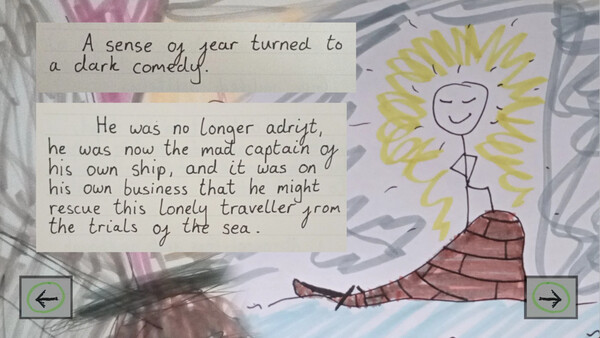 A sense of fear turned to
a dark comedy.
He was no longer adrift,
he was now the mad captain of
his own ship, and it was on
his own business that he might
rescue this lonely traveller from
the trials of the sea.